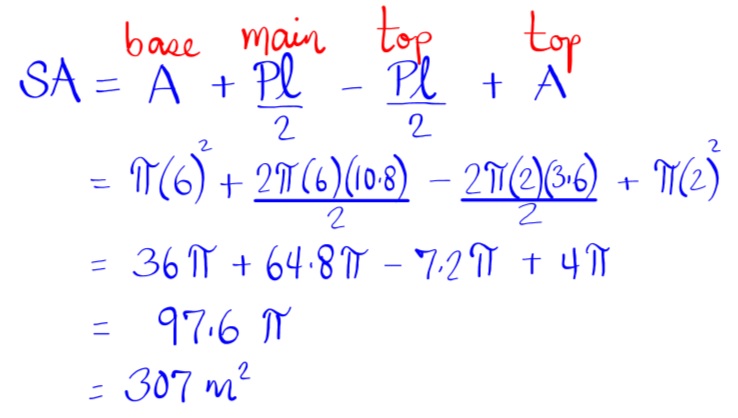 base main top top
SA = A + Pl/2 - Pl/2 + A
= π(6)² + 2π(6)(10.8)/2 - 2π(2)(3.6)/2 + π(2)²
= 36π + 64.8π - 7.2π + 4π
= 97.6 π
= 307 m²